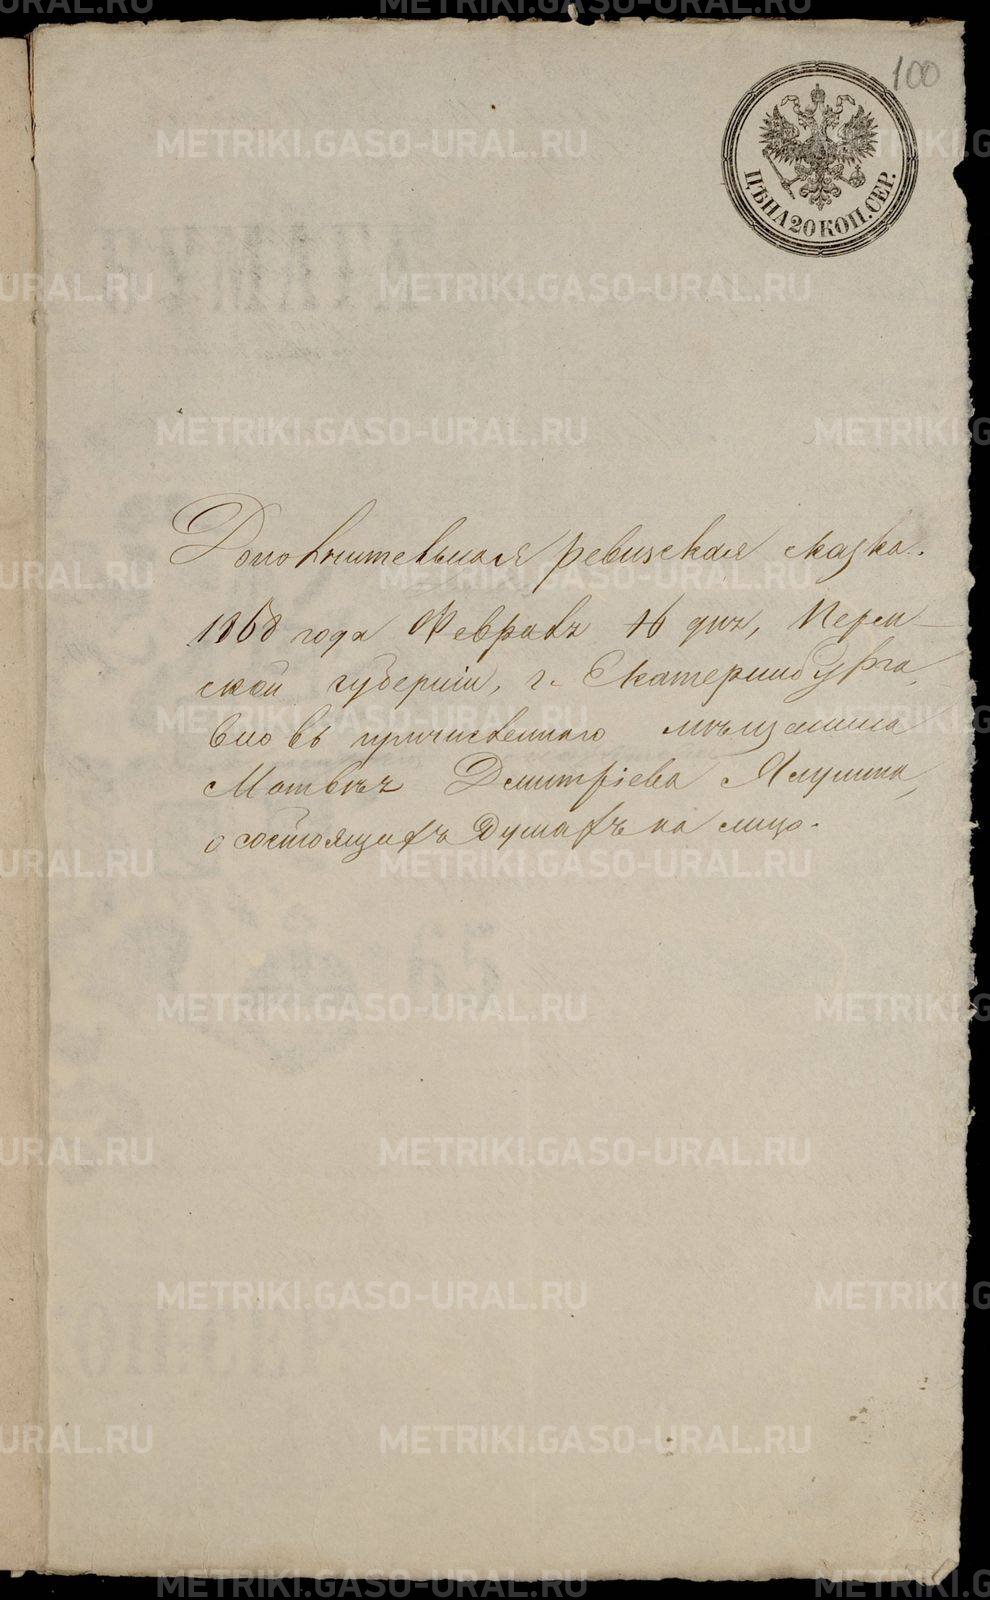 100
ЦѢНА 20 КОП. СЕР.
Дополнительная ревизская сказка.
1868 года Февраля 16 дня, Перм-
ской губерніи, г. Екатеринбурга,
вновь причисленнаго мѣщанина
Матвѣя Дмитріева Ялунина,
о состоящихъ душахъ на лицо.
METRIKI.GASO-URAL.RU